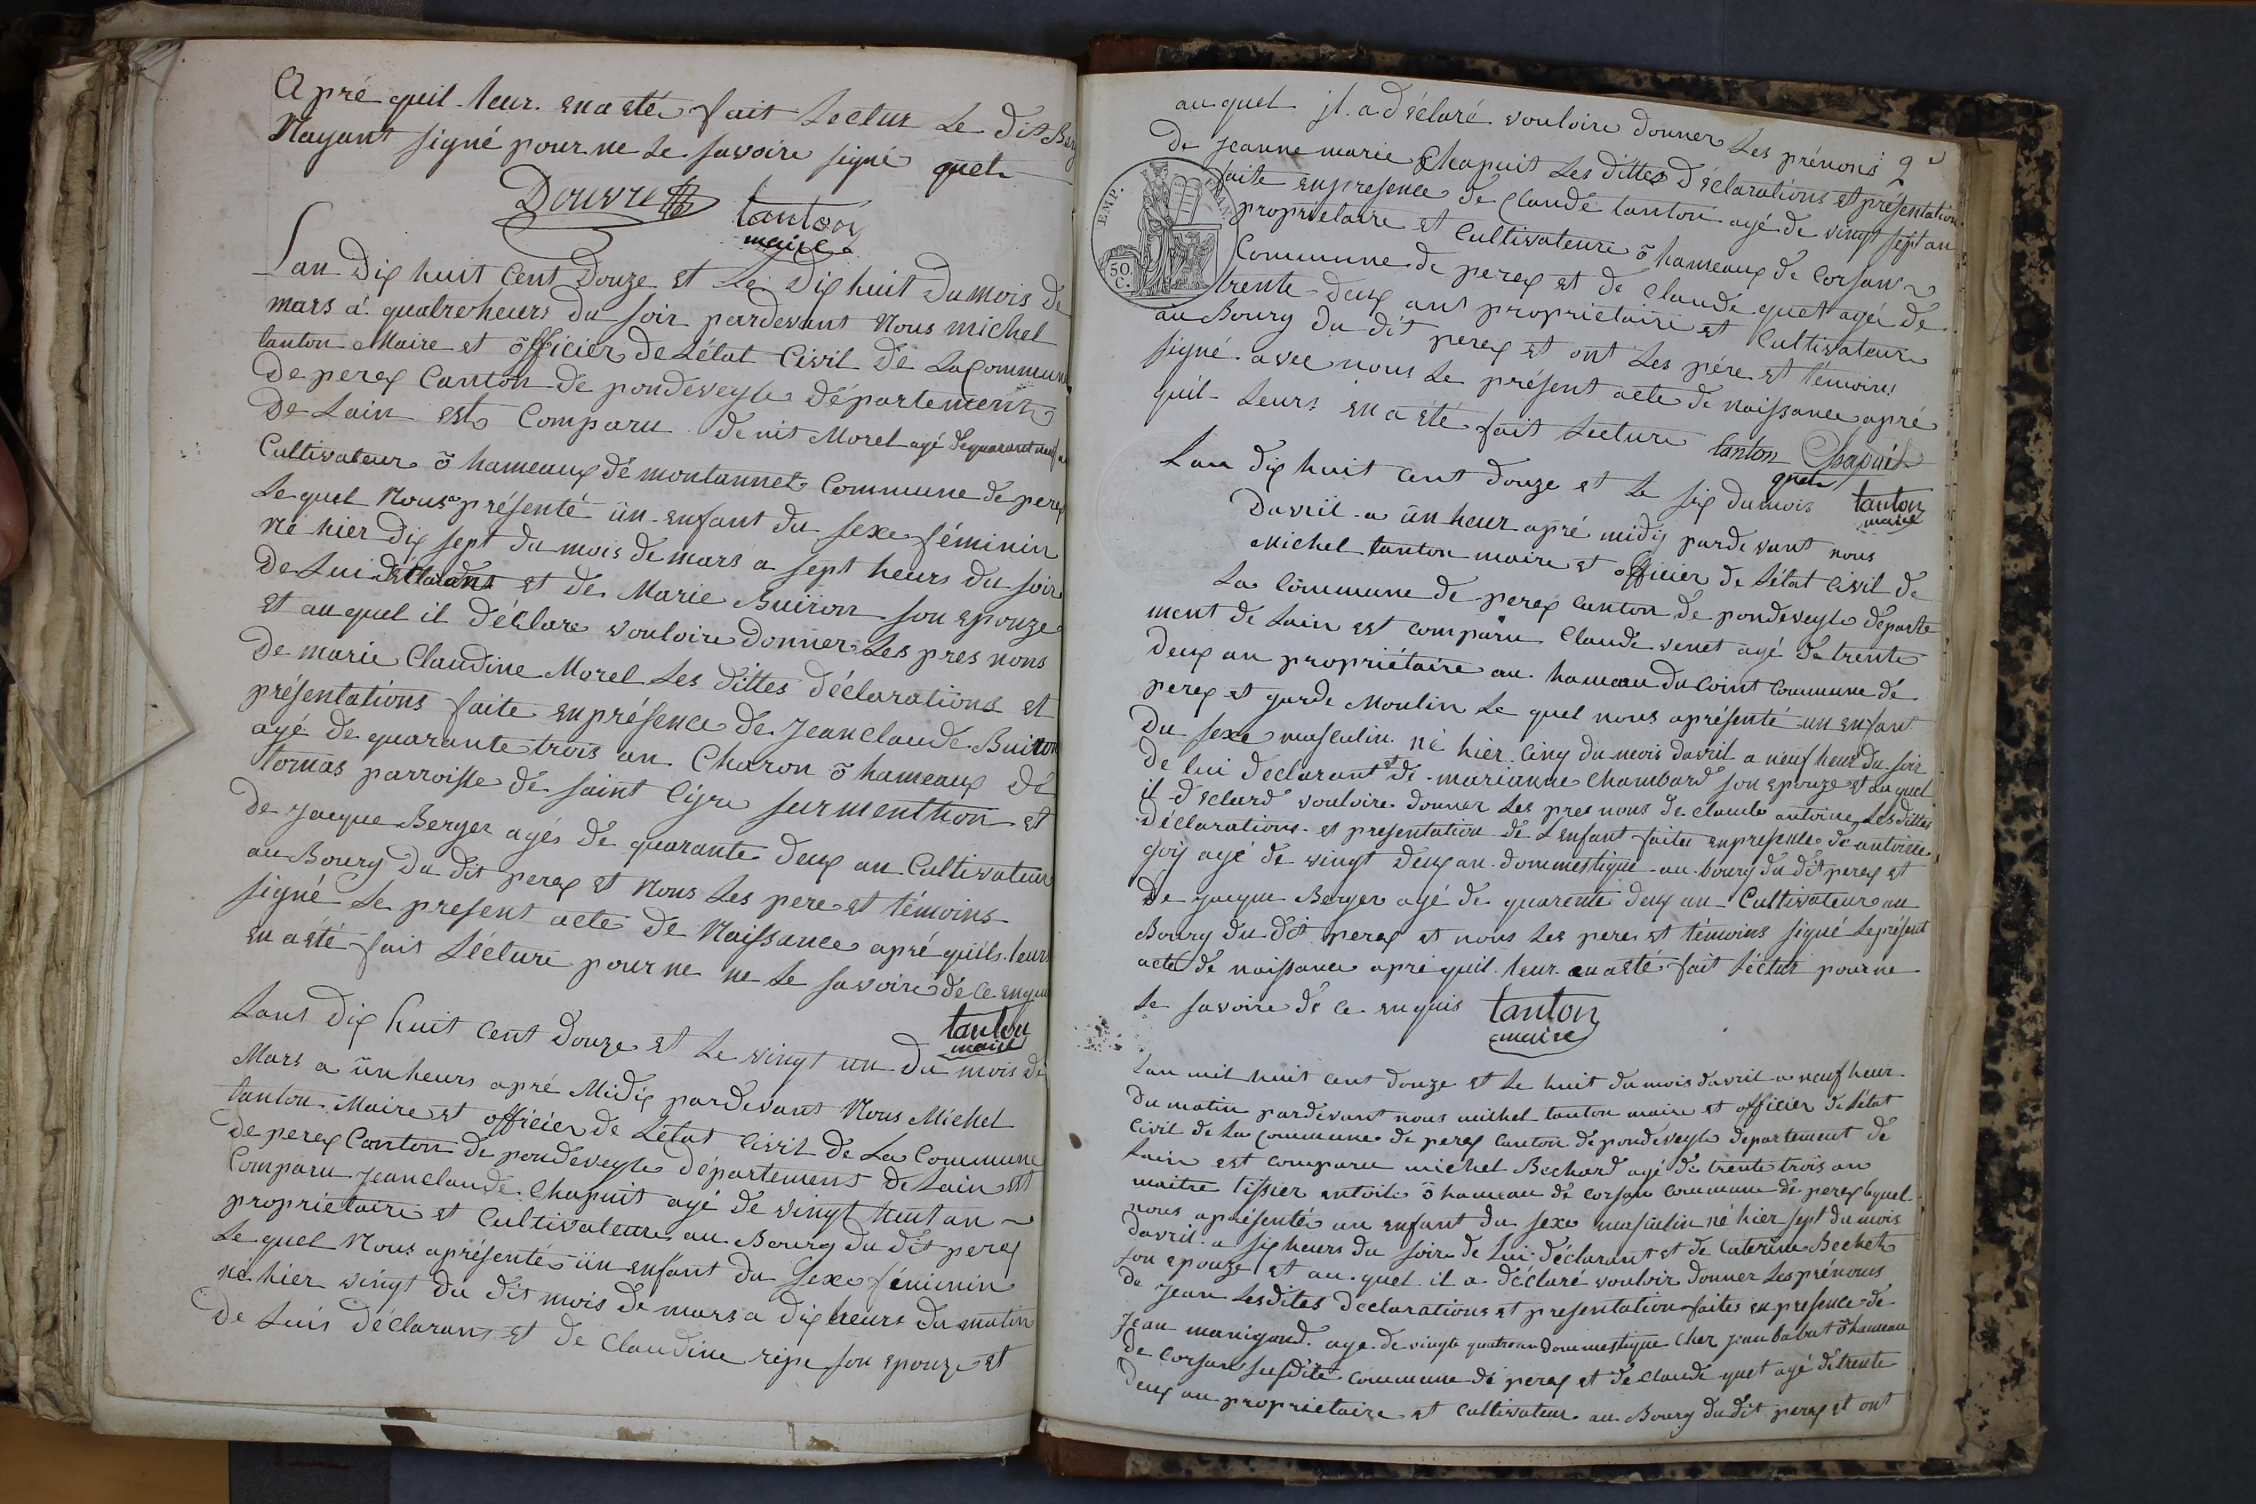 Apré quil leur en a eté fait Lectur Le dit Berg
Nayant signé pour ne Le savoire signé quet
Douvre tanton
maire
Lan Dix huit Cent Douze et Le Dix huit Du Mois De
mars à quatre heurs du soir pardevant Nous michel
tanton Maire et officier de Létat Civil De La Commune
De perex Canton de pondeveyle Département
De Lain est Comparu denis Morel agé de quarant neuf an
Cultivateur ö hameaux de montannet Commune de perex
Le quel Nous a présenté ün enfant du sexe féminin
né hier dix sept du mois de mars a sept heurs du soir
De Lui déclarant et de Marie Buiron son epouze
et au quel il déclare vouloire donner Les pres nons
De marie Claudine Morel Les dittes déclarations et
présentations faite en présence de Jean Claude Buiron
agé de quarante trois an Charon ö hameaux de
tomas parroisse de saint Cijre surmenthon et
de Jacque Berger agés de quarante deux an Cultivateur
au Bourg Du dit perex et Nous Les pere et témoins
signé Le present acte De Naissance apré quils leurs
en a été fait Lécture pour ne ne Le savoire de ce enqui
tanton
maire
Lans Dix huit Cent Douze et Le vingt un Du mois de
Mars a ün heurs apré Midis pardevant Nous Michel
tanton Maire et officier de Létat Civil de La Commune
De perex Canton de pondeveyle département de Lain est
Comparu Jean Claude Chapuit agé de vingt huit an
propriétaire et Cultivateure au Bourg du dit perex
Le quel Nous a présenté ün enfant du sexe féminin
né hier vingt du dit mois de mars a dix heurs du matin
De Luis déclarant et de Claudine ripe son epouze et
au quel jl a déclaré vouloire donner Les prénons
2e
De jeanne marie Chapuit Les dittes déclarations et présentation
faite en presence de Claude tanton agé de vingt sept an
propriétaire et Cultivateure ö hameaux de Corsan
Commune de perex et de Claude quet agé de
trente deux ans propriétaire et Cultivateur
au Bourg du dit perex et ont Les pére et témoins
signé avec nous Le présent acte de naissance apré
quil Leurs en a été fait Lecture tanton Chapuit
quet tanton
maire
EMP. FRAN.
50 C.
Lan dix huit cent douze et Le six du mois
Davril a ün heur apré midis pardevant nous
Michel tanton maire et officier de Létat Civil de
La Commune de perex canton de pondeveyle départe
ment de Lain est comparu Claude venet agé de trente
deux an propriétaire au hameau du Coint Commune de
perex et garde Moulin Le quel nous a présenté un enfant
Du sexe masculin né hier Cinq du mois davril a neuf heur du soir
De lui declarant et de marianne Chambard son epouze et du quel
il déclard vouloire donner Les pres nons de claude antoine Les dittes
Déclarations et présentation de Lenfant faites en presence de antoine
goÿ agé de vingt deux an dommestique au bourg du dit perex et
De Jacque Berger agé de quarente deux an Cultivateur au
Bourg du dit perex et nous Les pere et témoins signé Le présent
acte de naissance apré quil leur en a été fait Léctur pour ne
Le savoire de ce enquis tanton
maire
Lan mil huit cent douze et Le huit du mois davril a neuf heur
Du matin pardevant nous michel tanton maire et officier de Létat
Civil de La Commune de perex Canton de pondeveyle département de
Lain est comparu michel Bechard agé de trente trois an
maitre tissier entoile ö hameau de Corsan Commune de perex Lequel
nous a présenté un enfant du sexe masculin né hier sept du mois
davril a six heurs du soire de Lui déclarant et de Caterine Bechet
son epouze et au quel il a déclaré vouloir donner Les prénoms
de Jean Les dites declarations et presentation faites en presence de
Jean manigand age de vingte quatre an dommestique Cher Jean babut ö hameau
de Corsan susdite Commune de perex et de Claude quet agé de trente
deux an propriétaire et Cultivateur au Bourg du dit perex et ont